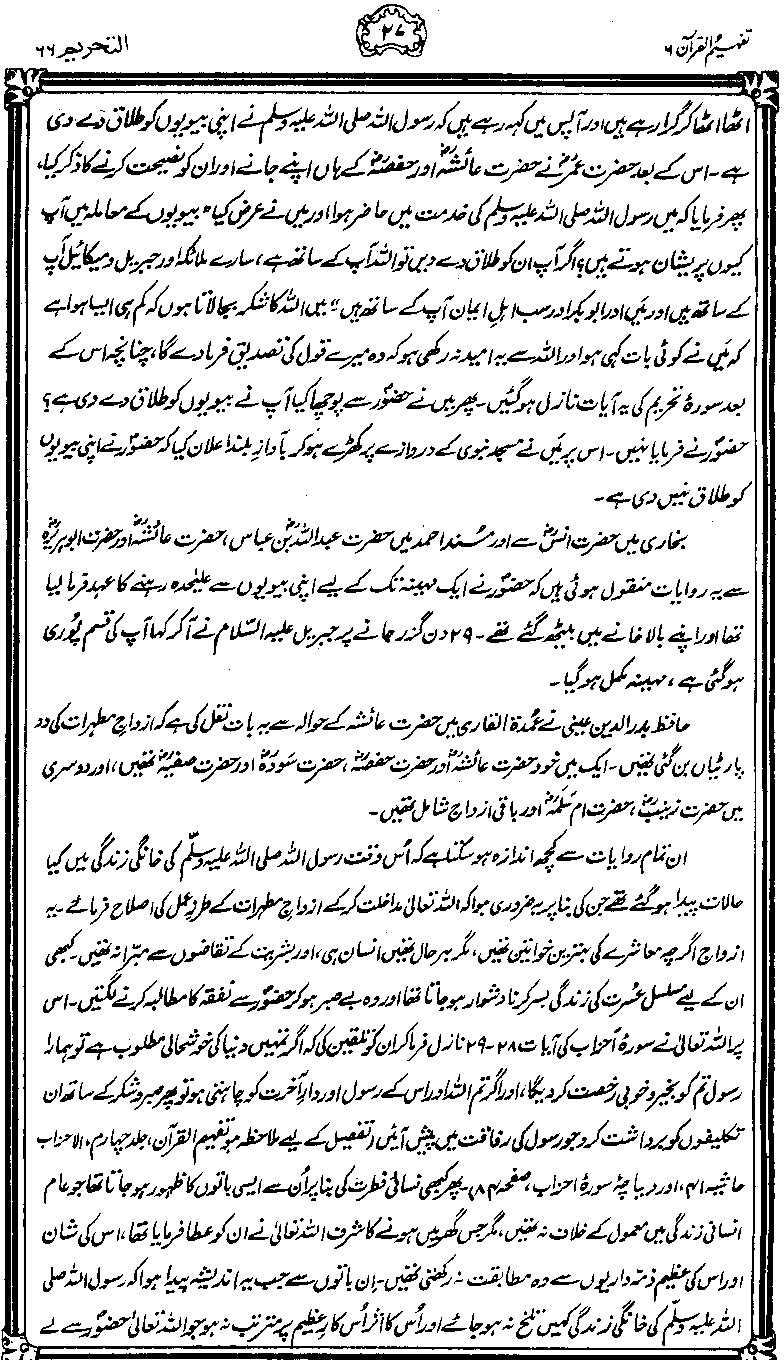 تفہیم القرآن ۶
۲۷
التحریم ۶۶
اٹھا اٹھا کر گرا رہے ہیں اور آپس میں کہہ رہے ہیں کہ رسول اللہ صلی اللہ علیہ وسلم نے اپنی بیویوں کو طلاق دے دی
ہے۔ اس کے بعد حضرت عمرؓ نے حضرت عائشہؓ اور حفصہؓ کے ہاں اپنے جانے اور ان کو نصیحت کرنے کا ذکر کیا،
پھر فرمایا کہ میں رسول اللہ صلی اللہ علیہ وسلم کی خدمت میں حاضر ہوا اور میں نے عرض کیا "بیویوں کے معاملہ میں آپ
کیوں پریشان ہوتے ہیں؟ اگر آپ ان کو طلاق دے دیں تو اللہ آپ کے ساتھ ہے، سارے ملائکہ اور جبریل و میکائیل آپ
کے ساتھ ہیں اور میں اور ابوبکر اور سب اہلِ ایمان آپ کے ساتھ ہیں" میں اللہ کا شکر بجا لاتا ہوں کہ کم ہی ایسا ہوا ہے
کہ میں نے کوئی بات کہی ہو اور اللہ سے یہ امید نہ رکھی ہو کہ وہ میرے قول کی تصدیق فرما دے گا، چنانچہ اس کے
بعد سورۂ تحریم کی یہ آیات نازل ہو گئیں۔ پھر میں نے حضورؐ سے پوچھا کیا آپ نے بیویوں کو طلاق دے دی ہے؟
حضورؐ نے فرمایا نہیں۔ اس پر میں نے مسجد نبوی کے دروازے پر کھڑے ہو کر بآوازِ بلند اعلان کیا کہ حضورؐ نے اپنی بیویوں
کو طلاق نہیں دی ہے۔
بخاری میں حضرت انسؓ سے اور مُسند احمد میں حضرت عبداللہؓ بن عباس، حضرت عائشہؓ اور حضرت ابوہریرہؓ
سے یہ روایات منقول ہوئی ہیں کہ حضورؐ نے ایک مہینہ تک کے لیے اپنی بیویوں سے علیٰحدہ رہنے کا عہد فرما لیا
تھا اور اپنے بالا خانے میں بیٹھ گئے تھے۔ ۲۹ دن گزر جانے پر جبریل علیہ السّلام نے آ کر کہا آپ کی قسم پُوری
ہو گئی ہے، مہینہ مکمل ہو گیا۔
حافظ بدر الدین عینی نے عُمدۃ القاری میں حضرت عائشہ کے حوالہ سے یہ بات نقل کی ہے کہ ازواجِ مطہرات کی دو
پارٹیاں بن گئی تھیں۔ ایک میں خود حضرت عائشہؓ اور حضرت حفصہؓ، حضرت سَودہؓ اور حضرت صفیہؓ تھیں، اور دوسری
میں حضرت زینبؓ، حضرت ام سَلَمہؓ اور باقی ازواج شامل تھیں۔
ان تمام روایات سے کچھ اندازہ ہو سکتا ہے کہ اُس وقت رسول اللہ صلی اللہ علیہ وسلّم کی خانگی زندگی میں کیا
حالات پیدا ہو گئے تھے جن کی بنا پر یہ ضروری ہوا کہ اللہ تعالیٰ مداخلت کر کے ازواجِ مطہرات کے طرزِ عمل کی اصلاح فرمائے۔ یہ
ازواج اگرچہ معاشرے کی بہترین خواتین تھیں، مگر بہر حال تھیں انسان ہی، اور بشریت کے تقاضوں سے مبرّا نہ تھیں۔ کبھی
ان کے لیے مسلسل عُسرت کی زندگی بسر کرنا دشوار ہو جاتا تھا اور وہ بے صبر ہو کر حضورؐ سے نفقہ کا مطالبہ کرنے لگتیں۔ اس
پر اللہ تعالیٰ نے سورۂ احزاب کی آیات ۲۸-۲۹ نازل فرما کر ان کو تلقین کی کہ اگر تمہیں دنیا کی خوشحالی مطلوب ہے تو ہمارا
رسول تم کو بخیر و خوبی رخصت کر دیگا، اور اگر تم اللہ اور اس کے رسول اور دارِ آخرت کو چاہتی ہو تو پھر صبر و شکر کے ساتھ ان
تکلیفوں کو برداشت کرو جو رسول کی رفاقت میں پیش آئیں (تفصیل کے لیے ملاحظہ ہو تفہیم القرآن، جلد چہارم، الاحزاب
حاشیہ ۴۱، اور دیباچۂ سورۂ احزاب، صفحہ ۸۴)۔ پھر کبھی نسائی فطرت کی بنا پر اُن سے ایسی باتوں کا ظہور ہو جاتا تھا جو عام
انسانی زندگی میں معمول کے خلاف نہ تھیں، مگر جس گھر میں ہونے کا شرف اللہ تعالیٰ نے ان کو عطا فرمایا تھا، اس کی شان
اور اس کی عظیم ذمّہ داریوں سے وہ مطابقت نہ رکھتی تھیں۔ اِن باتوں سے جب یہ اندیشہ پیدا ہوا کہ رسول اللہ صلی
اللہ علیہ وسلّم کی خانگی زندگی کہیں تلخ نہ ہو جائے اور اُس کا اثر اُس کارِ عظیم پر مترتب نہ ہو جو اللہ تعالیٰ حضورؐ سے لے